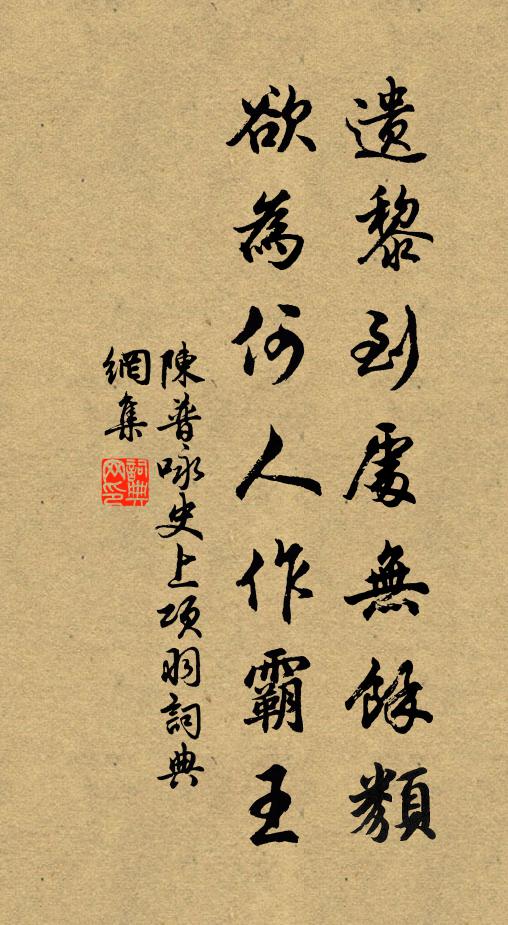 遺黎到處無餘類
欲為何人作霸王
陳普咏史上項羽詞典
網集
詞典
网印